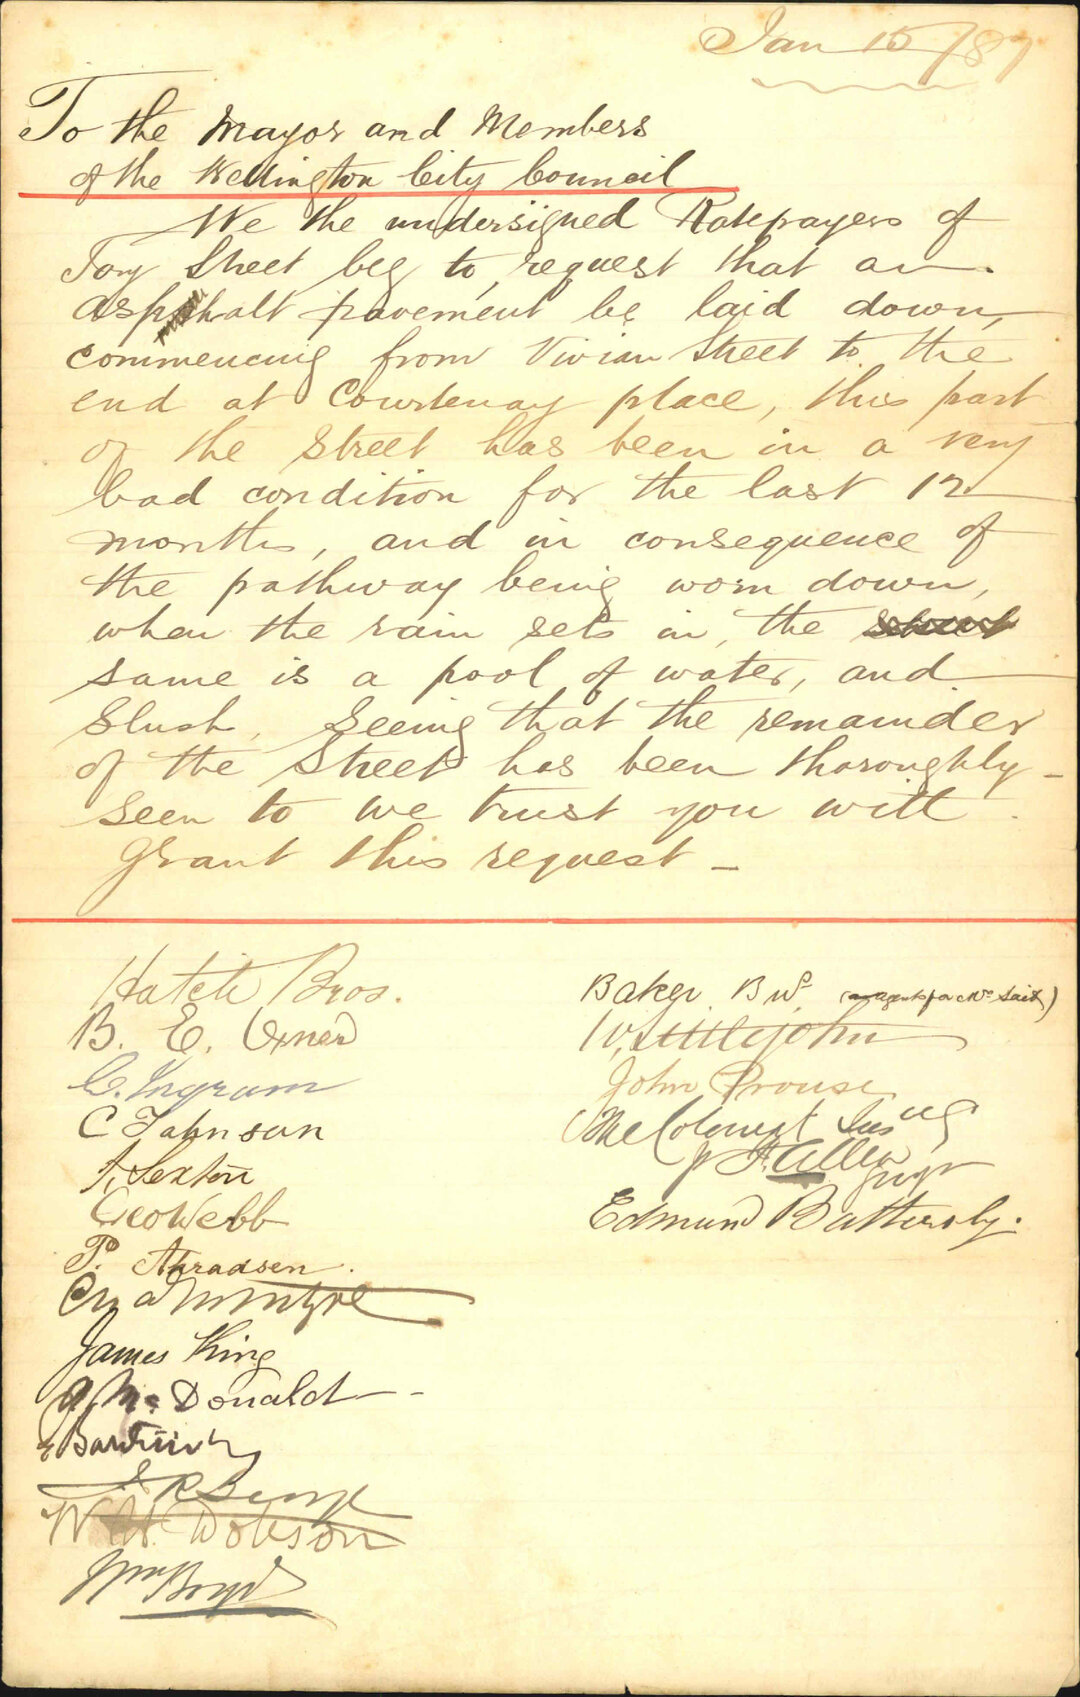 Jan 15/87
To the Mayor and Members
of the Wellington City Council
We the undersigned Ratepayers of
Tory Street beg to request that an
asphalt pavement be laid down,
commencing from Vivian Street to the
end at Courtenay place, this part
of the Street has been in a very
bad condition for the last 12
months, and in consequence of
the pathway being worn down,
when the rain sets in, the
same is a pool of water, and
Slush. Seeing that the remainder
of the Street has been thoroughly
seen to we trust you will
grant this request —
Hatch Bros.
B. E.
C. Ingram
C Johnson
A. Sexton
Geo Webb
P.
James King
McDonald
W. H. Dobson
Wm Boyd
Baker Bros (agents for Mrs Sait)
W. Littlejohn
John Prouse
The Colonist
Allen
Edmund Battersby.